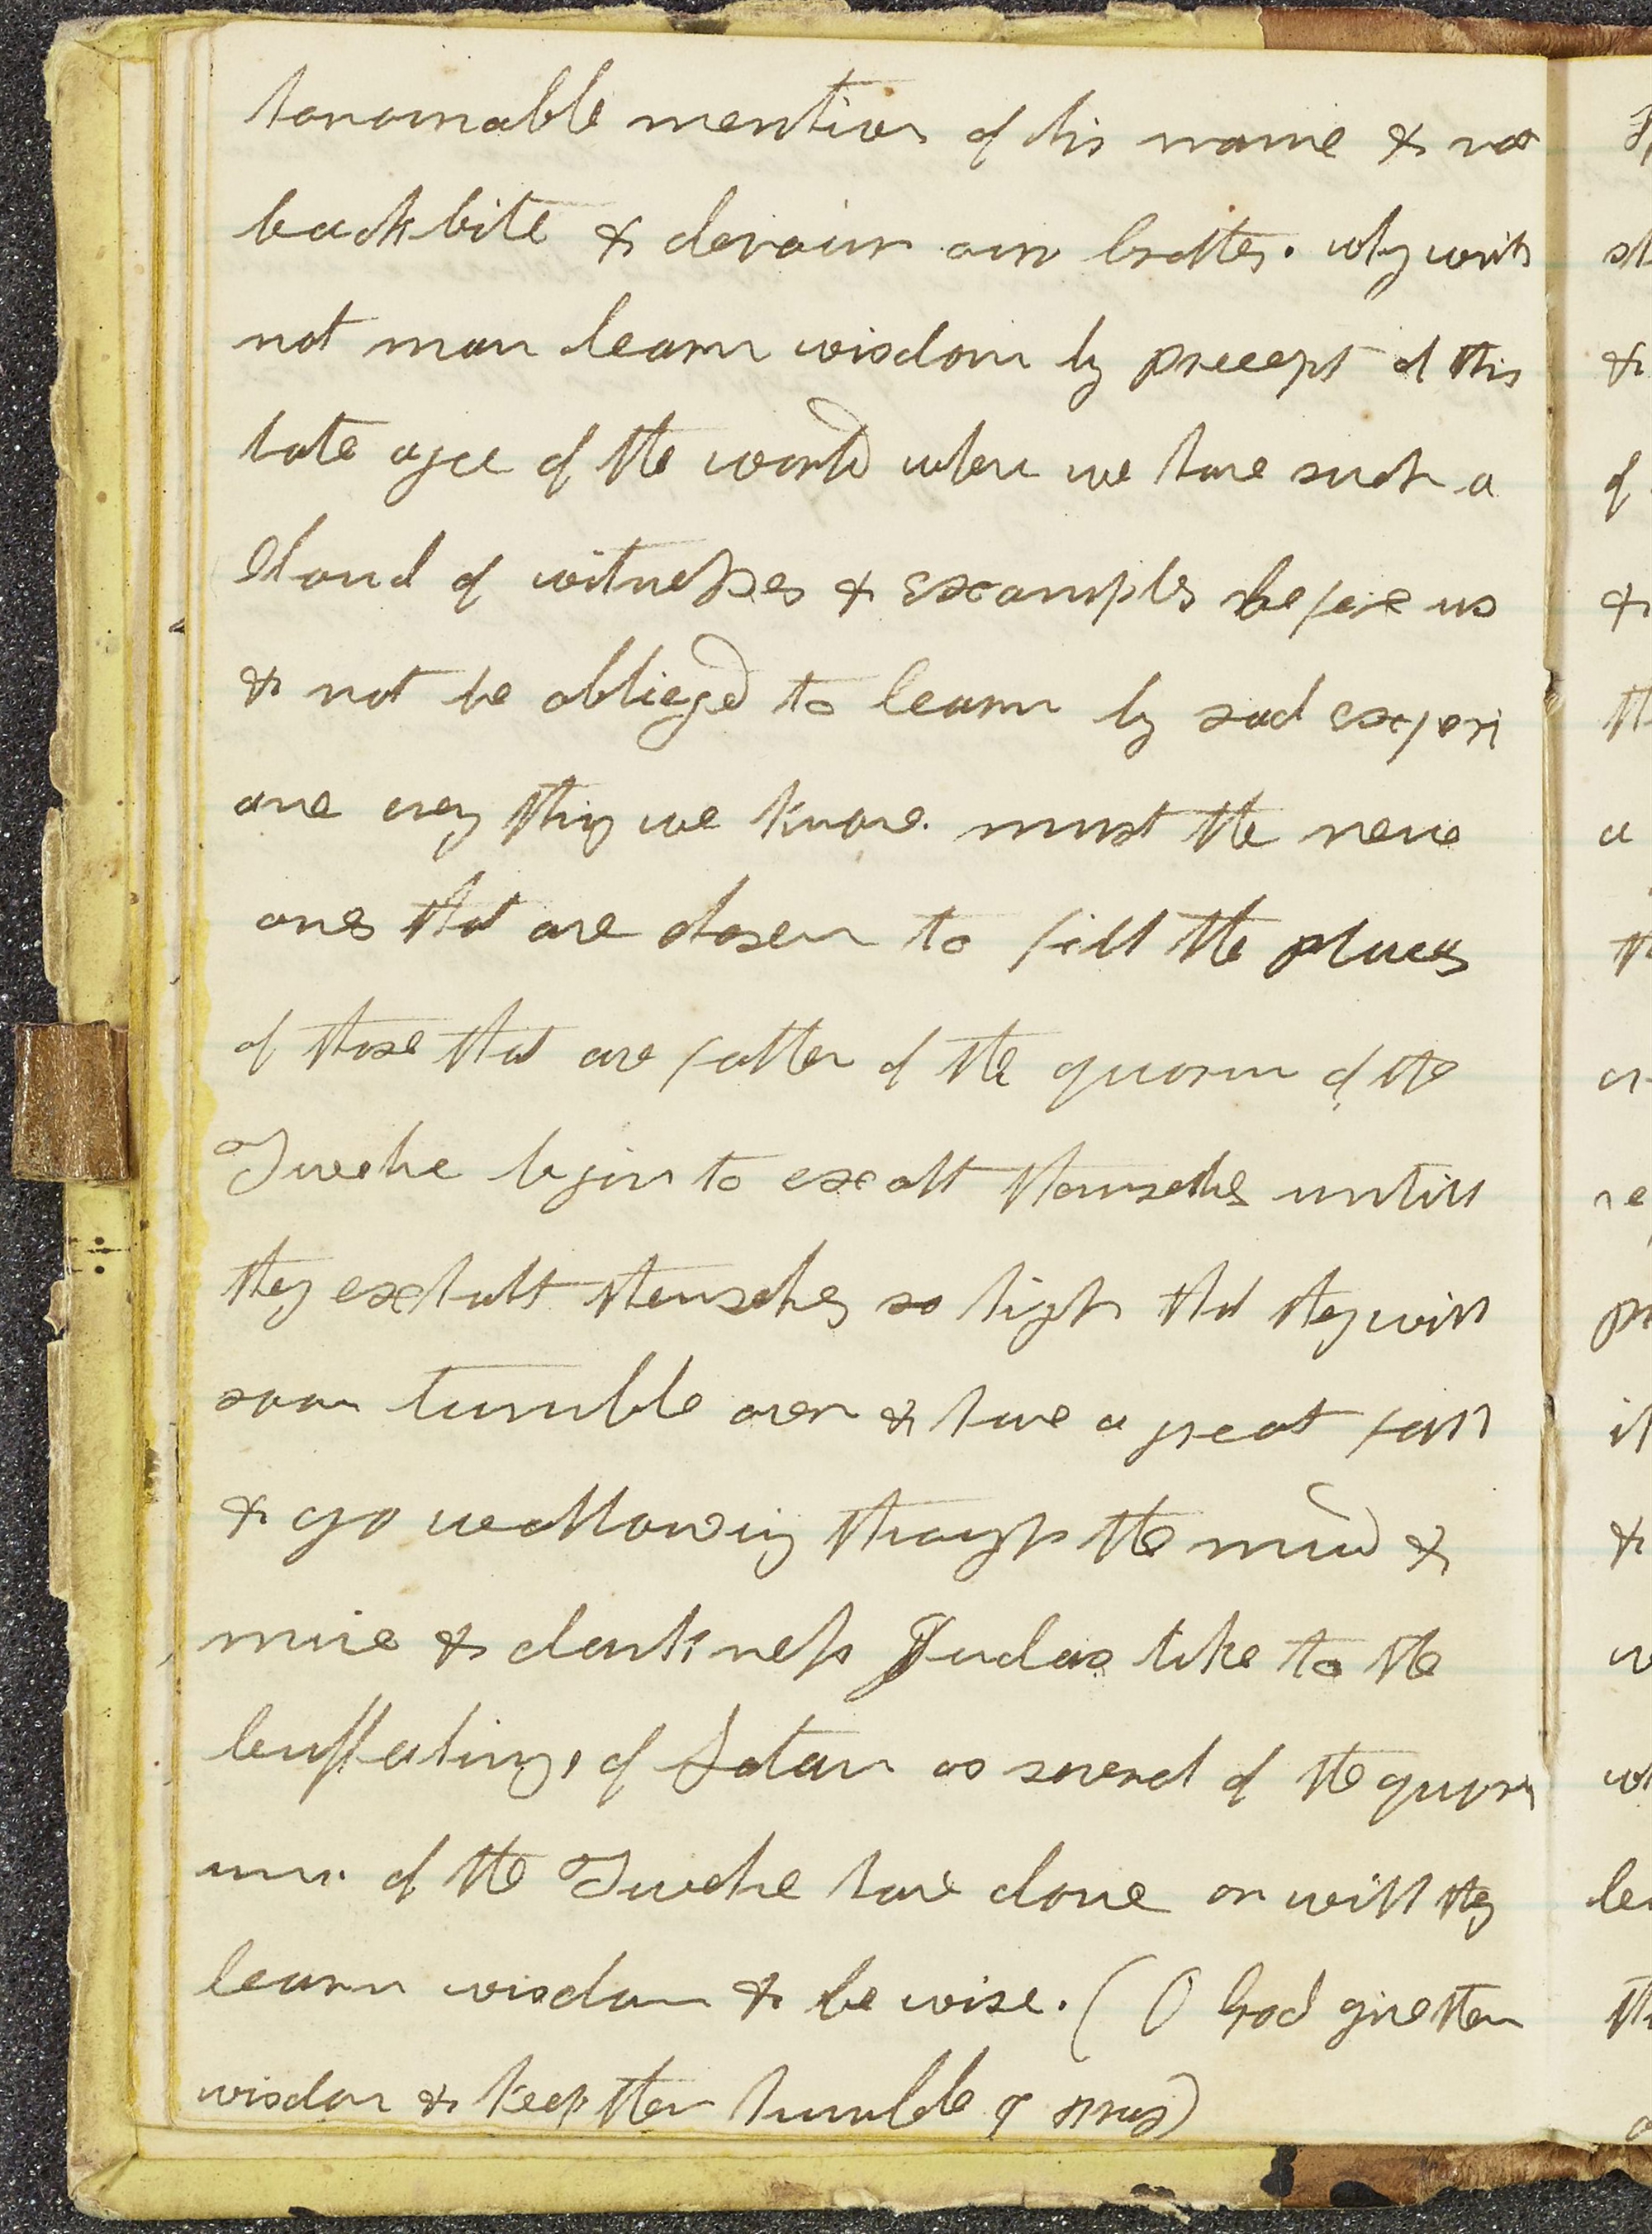 honorable mention of his name & not
backbite & devour our brother. why will
not man learn wisdom by precept at this
late age of the world when we have such a
cloud of witnesses & examples before us
& not be obliege'd to learn by sad experi
ance every thing we know. must the new
ones that are chosen to fill the places
of those that are fallen of the quorum of the
Twelve begin to exalt themselves untill
they exhalt themselves so high that they will
soon tumble over & have a great fall
& go wallowing through the mud &
mire & darkness Judas like to the
buffatings of Satan as several of the quor
um. of the Twelve have done or will they
learn wisdom & be wise. (O God give them
wisdom & keep them humble